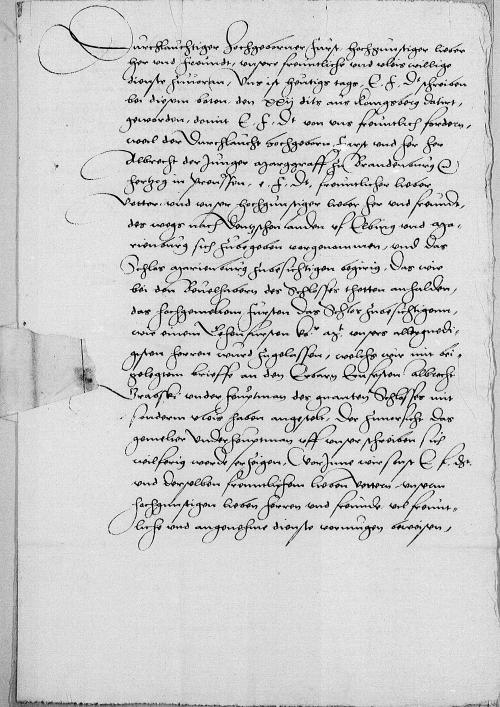 Durchlauchtiger Hochgeborner Fürst hochgunstiger lieber
her und Freundt, unsere freuntliche und vleis willige
dienste zuuoran, Uns ist heutigs tags, E. F. Dt schreiben
bei diesem boten, den XXij dits aus Königsberg datirt,
geworden, domit E. F. Dt von uns freuntlich fordern,
weil der Durchlaucht Hochgeborn Fürst und her her
Albrecht der Junger Marggraff zu Brandenburg
hertzog in Preussen, e. F. Dt. freuntlicher lieber
Vetter, und unser hochgunstiger lieber her und freundt,
des wegs nach Deutzschen landen uf Elbing und Ma-
rienburg sich zubegeben vorgenommen, und das
Schlos Marienburg zubesichtigen begirig, das wir
bei den Beuelhabern des Schlosses thetten anhalden,
das hochgemeltem Fürsten das Schlos zubesichtigenn,
wie einem Lehensfursten Ko. Mt. unsers allergnedi-
gsten herren wurd zugelassen, welchs wir mit bei-
gelegtem briefe an den Erbarn Ernvesten Albrecht
under heuptman des gnanten Schlosses mit
sonderm vleis haben angesatzt, Der zuuorsicht das
gemelter Underheuptman uff unser schreiben sich
wilferig werde erzeigen, Worinne wir sonst E. F. Dt.
und derselben freuntlichem lieben Vettern unserm
hochgunstigen lieben herren und freunde vil freunt-
liche und angenehme dienste vermugen beweisen,